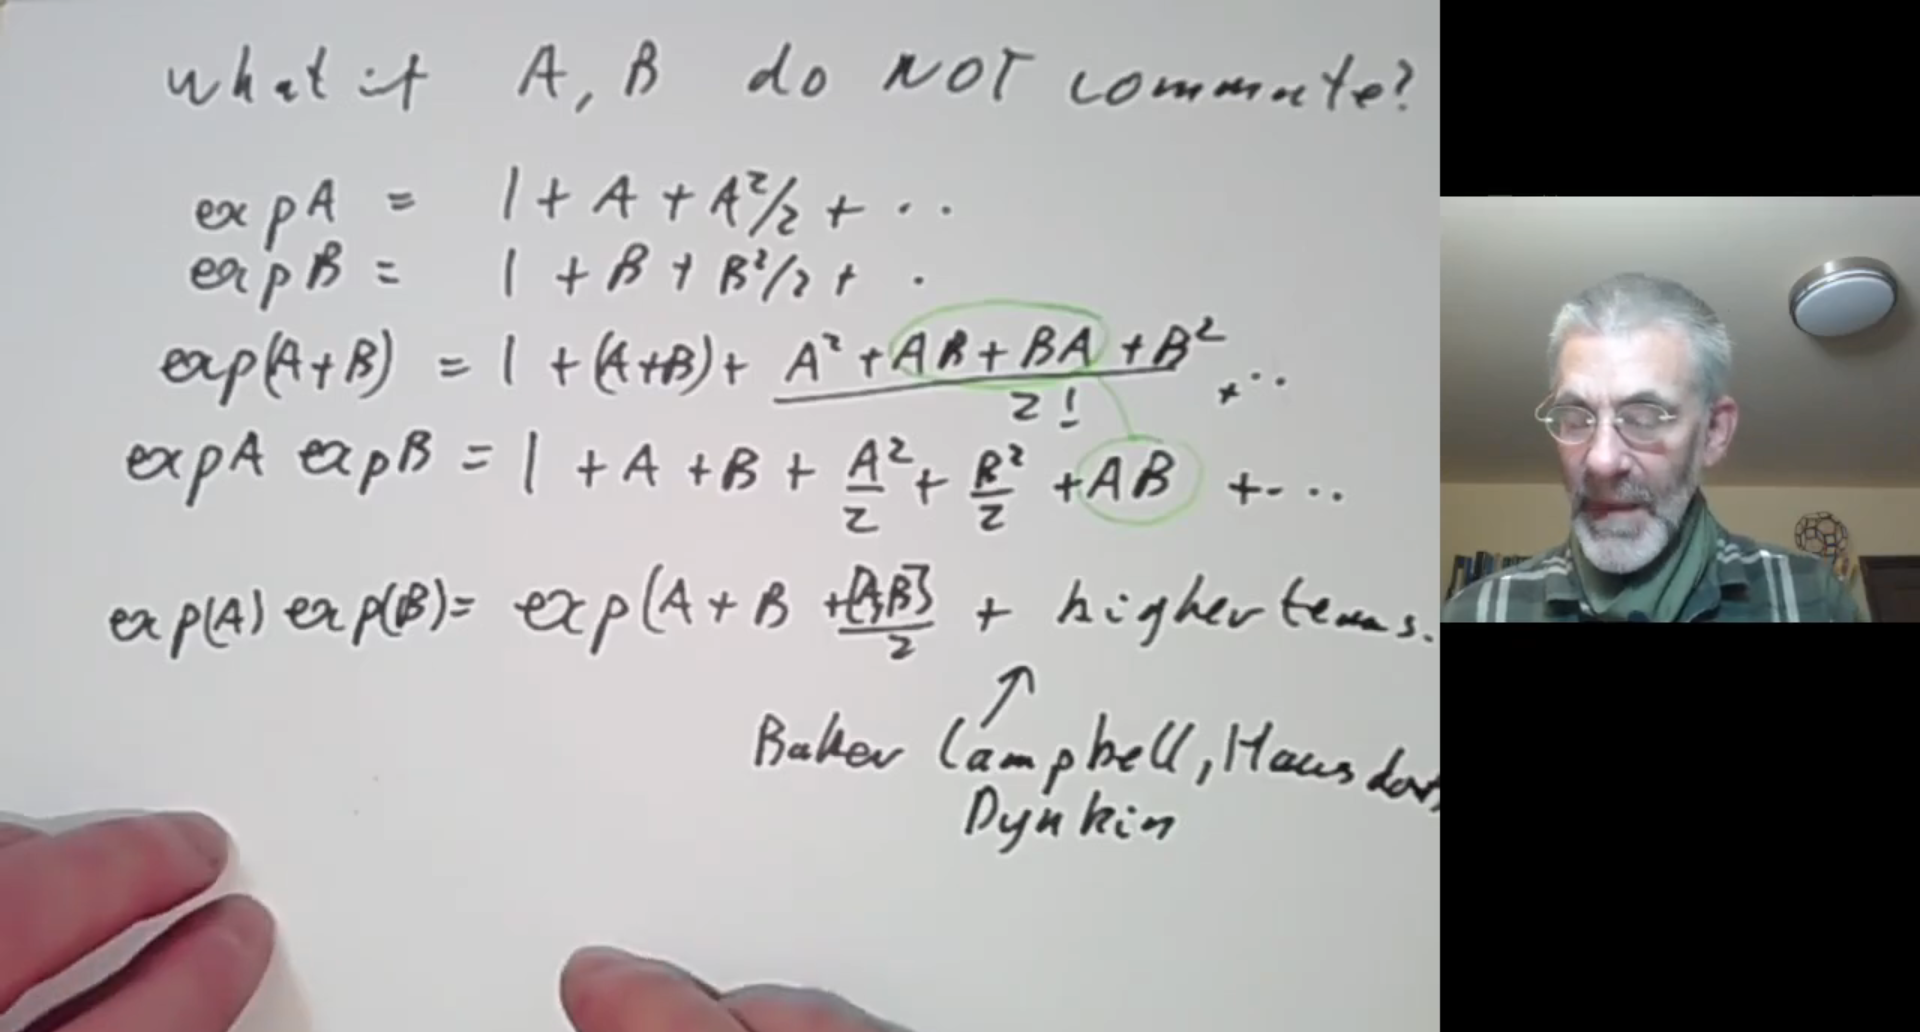 What if A, B do NOT commute?
exp A = 1 + A + A²/2 + ...
exp B = 1 + B + B²/2 + .
exp(A+B) = 1 + (A+B) + (A² + AB + BA + B²)/2! + ...
exp A exp B = 1 + A + B + A²/2 + B²/2 + AB + ...
exp(A) exp(B) = exp(A + B + [A,B]/2 + higher terms.
↑
Baker Campbell, Hausdorf
Dynkin